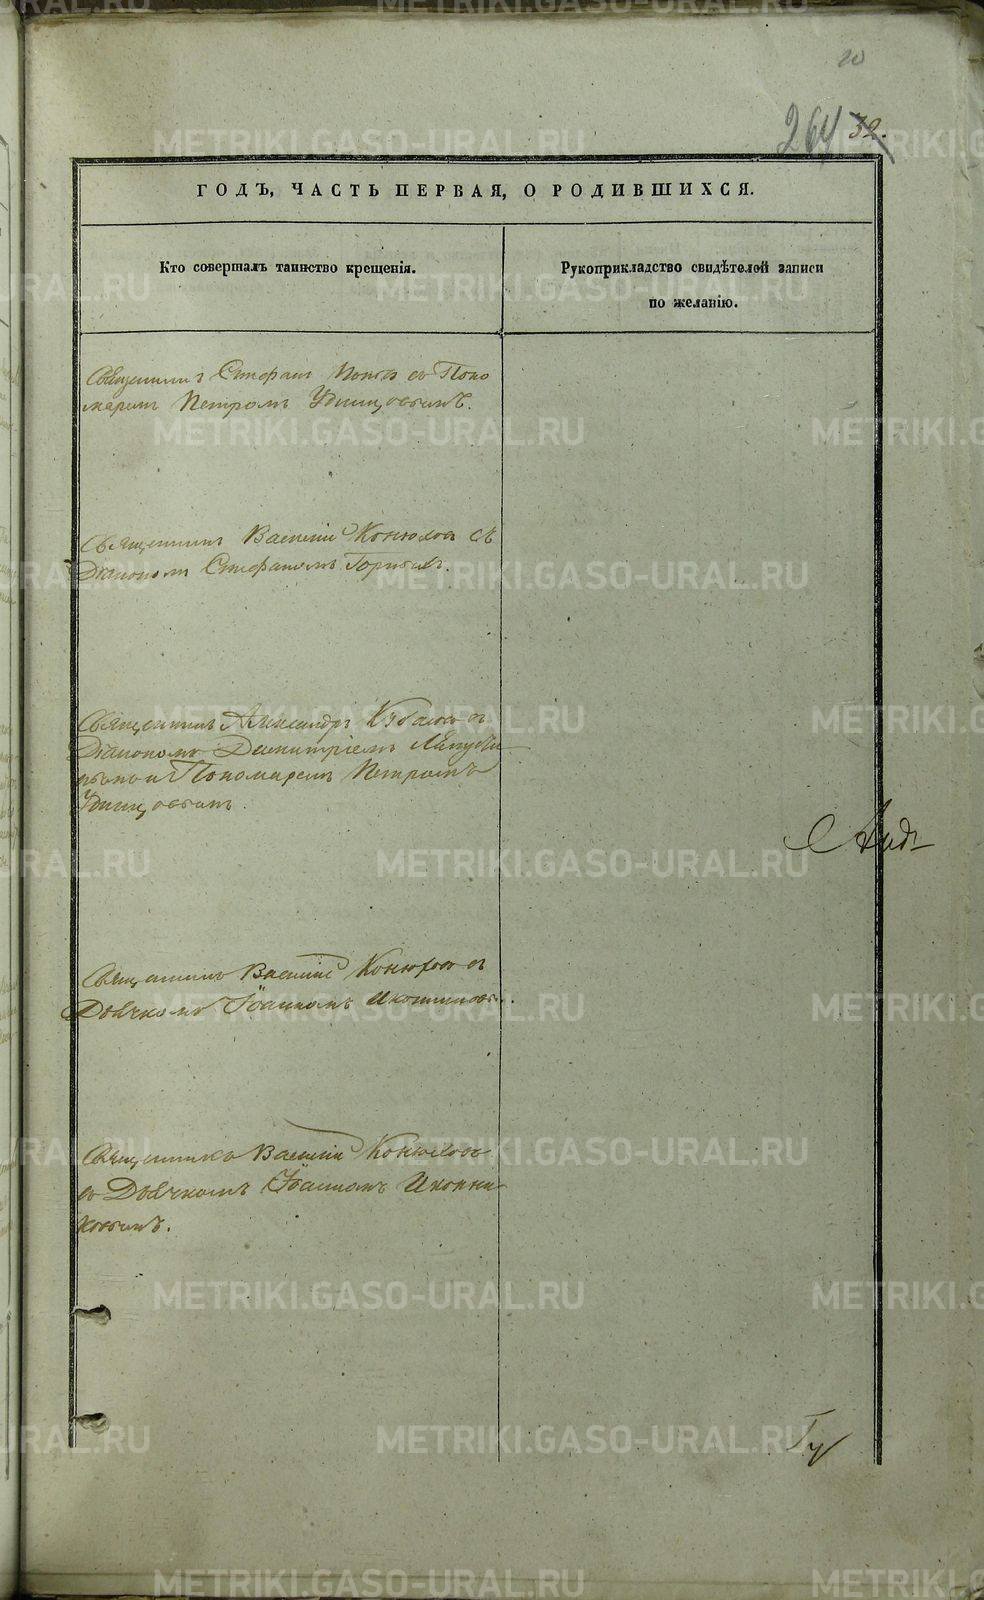 20
264 32.
ГОДЪ, ЧАСТЬ ПЕРВАЯ, О РОДИВШИХСЯ.
Кто совершалъ таинство крещенія.
Рукоприкладство свидѣтелей записи
по желанію.
Священникъ Стефанъ Поповъ съ Поно
маремъ Петромъ Удинцовымъ.
Священникъ Василій Конюховъ съ
Діакономъ Стефаномъ
Священникъ Александръ съ
Діакономъ Димитріемъ
и Пономаремъ Петромъ
Удинцовымъ.
Священникъ Василій Конюховъ съ
Дьячкомъ Іоанномъ Иконниковы.
Священникъ Василій Конюховъ
съ Дьячкомъ Іоанномъ Иконни-
ковымъ.
METRIKI.GASO-URAL.RU